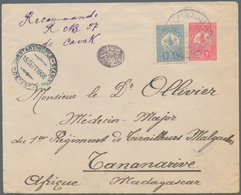 Recommandé
R No 27
de Cavak
Monsieur le Dr Ollivier
Médecin-Major
du 1er Régiment de Tirailleurs Malgaches
Tananarive
Afrique Madagascar